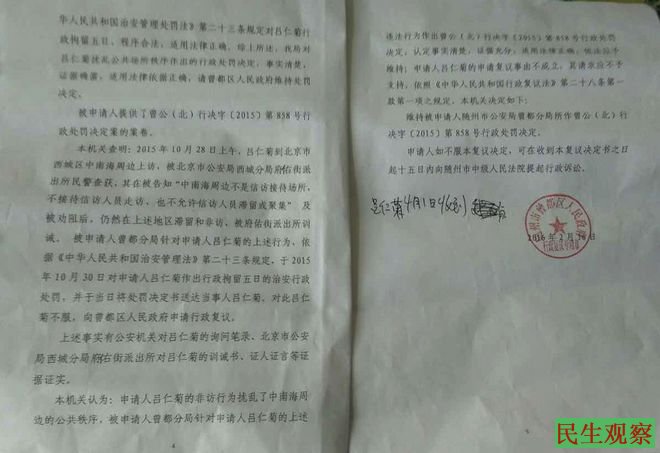 华人民共和国治安管理处罚法》第二十三条规定对吕仁菊行
政拘留五日，程序合法，适用法律正确。综上所述，我局对
吕仁菊扰乱公共场所秩序作出的行政处罚决定，事实清楚，
证据确凿，适用法律依据正确，请曾都区人民政府维持处罚
决定。
被申请人提供了曾公（北）行决字〔2015〕第 858 号行
政处罚决定案的案卷。
本机关查明：2015 年 10 月 28 日上午，吕仁菊到北京市
西城区中南海周边上访，被北京市公安局西城分局府右街派
出所民警查获，其在被告知“中南海周边不是信访接待场所，
不接待信访人员走访，也不允许信访人员滞留或聚集”及
被劝阻后，仍然在上述地区滞留和非访，被府佑街派出所训
诫。被申请人曾都分局针对申请人吕仁菊的上述行为，依
据《中华人民共和国治安管理法》第二十三条规定，于 2015
年 10 月 30 日对申请人吕仁菊作出行政拘留五日的治安行政
处罚，并于当日将处罚决定书送达当事人吕仁菊。对此吕仁
菊不服，向曾都区人民政府申请行政复议。
上述事实有公安机关对吕仁菊的询问笔录、北京市公安
局西城分局府佑街派出所对吕仁菊的训诫书、证人证言等证
据证实。
本机关认为：申请人吕仁菊的非访行为扰乱了中南海周
边的公共秩序，被申请人曾都分局针对申请人吕仁菊的上述
4
违法行为作出曾公（北）行决字〔2015〕第 858 号行政处罚
决定，认定事实清楚，证据充分，适用法律正确，依法应予
维持；申请人吕仁菊的申请复议事由不成立，其请求应不予
支持。依照《中华人民共和国行政复议法》第二十八条第一
款第一项之规定，本机关决定如下：
维持被申请人随州市公安局曾都分局所作曾公（北）行
决字〔2015〕第 858 号行政处罚决定。
申请人如不服本复议决定，可在收到本复议决定书之日
起十五日内向随州市中级人民法院提起行政诉讼。
吕仁菊4月1日收到
随州市曾都区人民政府
2016 年 2 月 16 日
行政复议专用章
5
民生观察